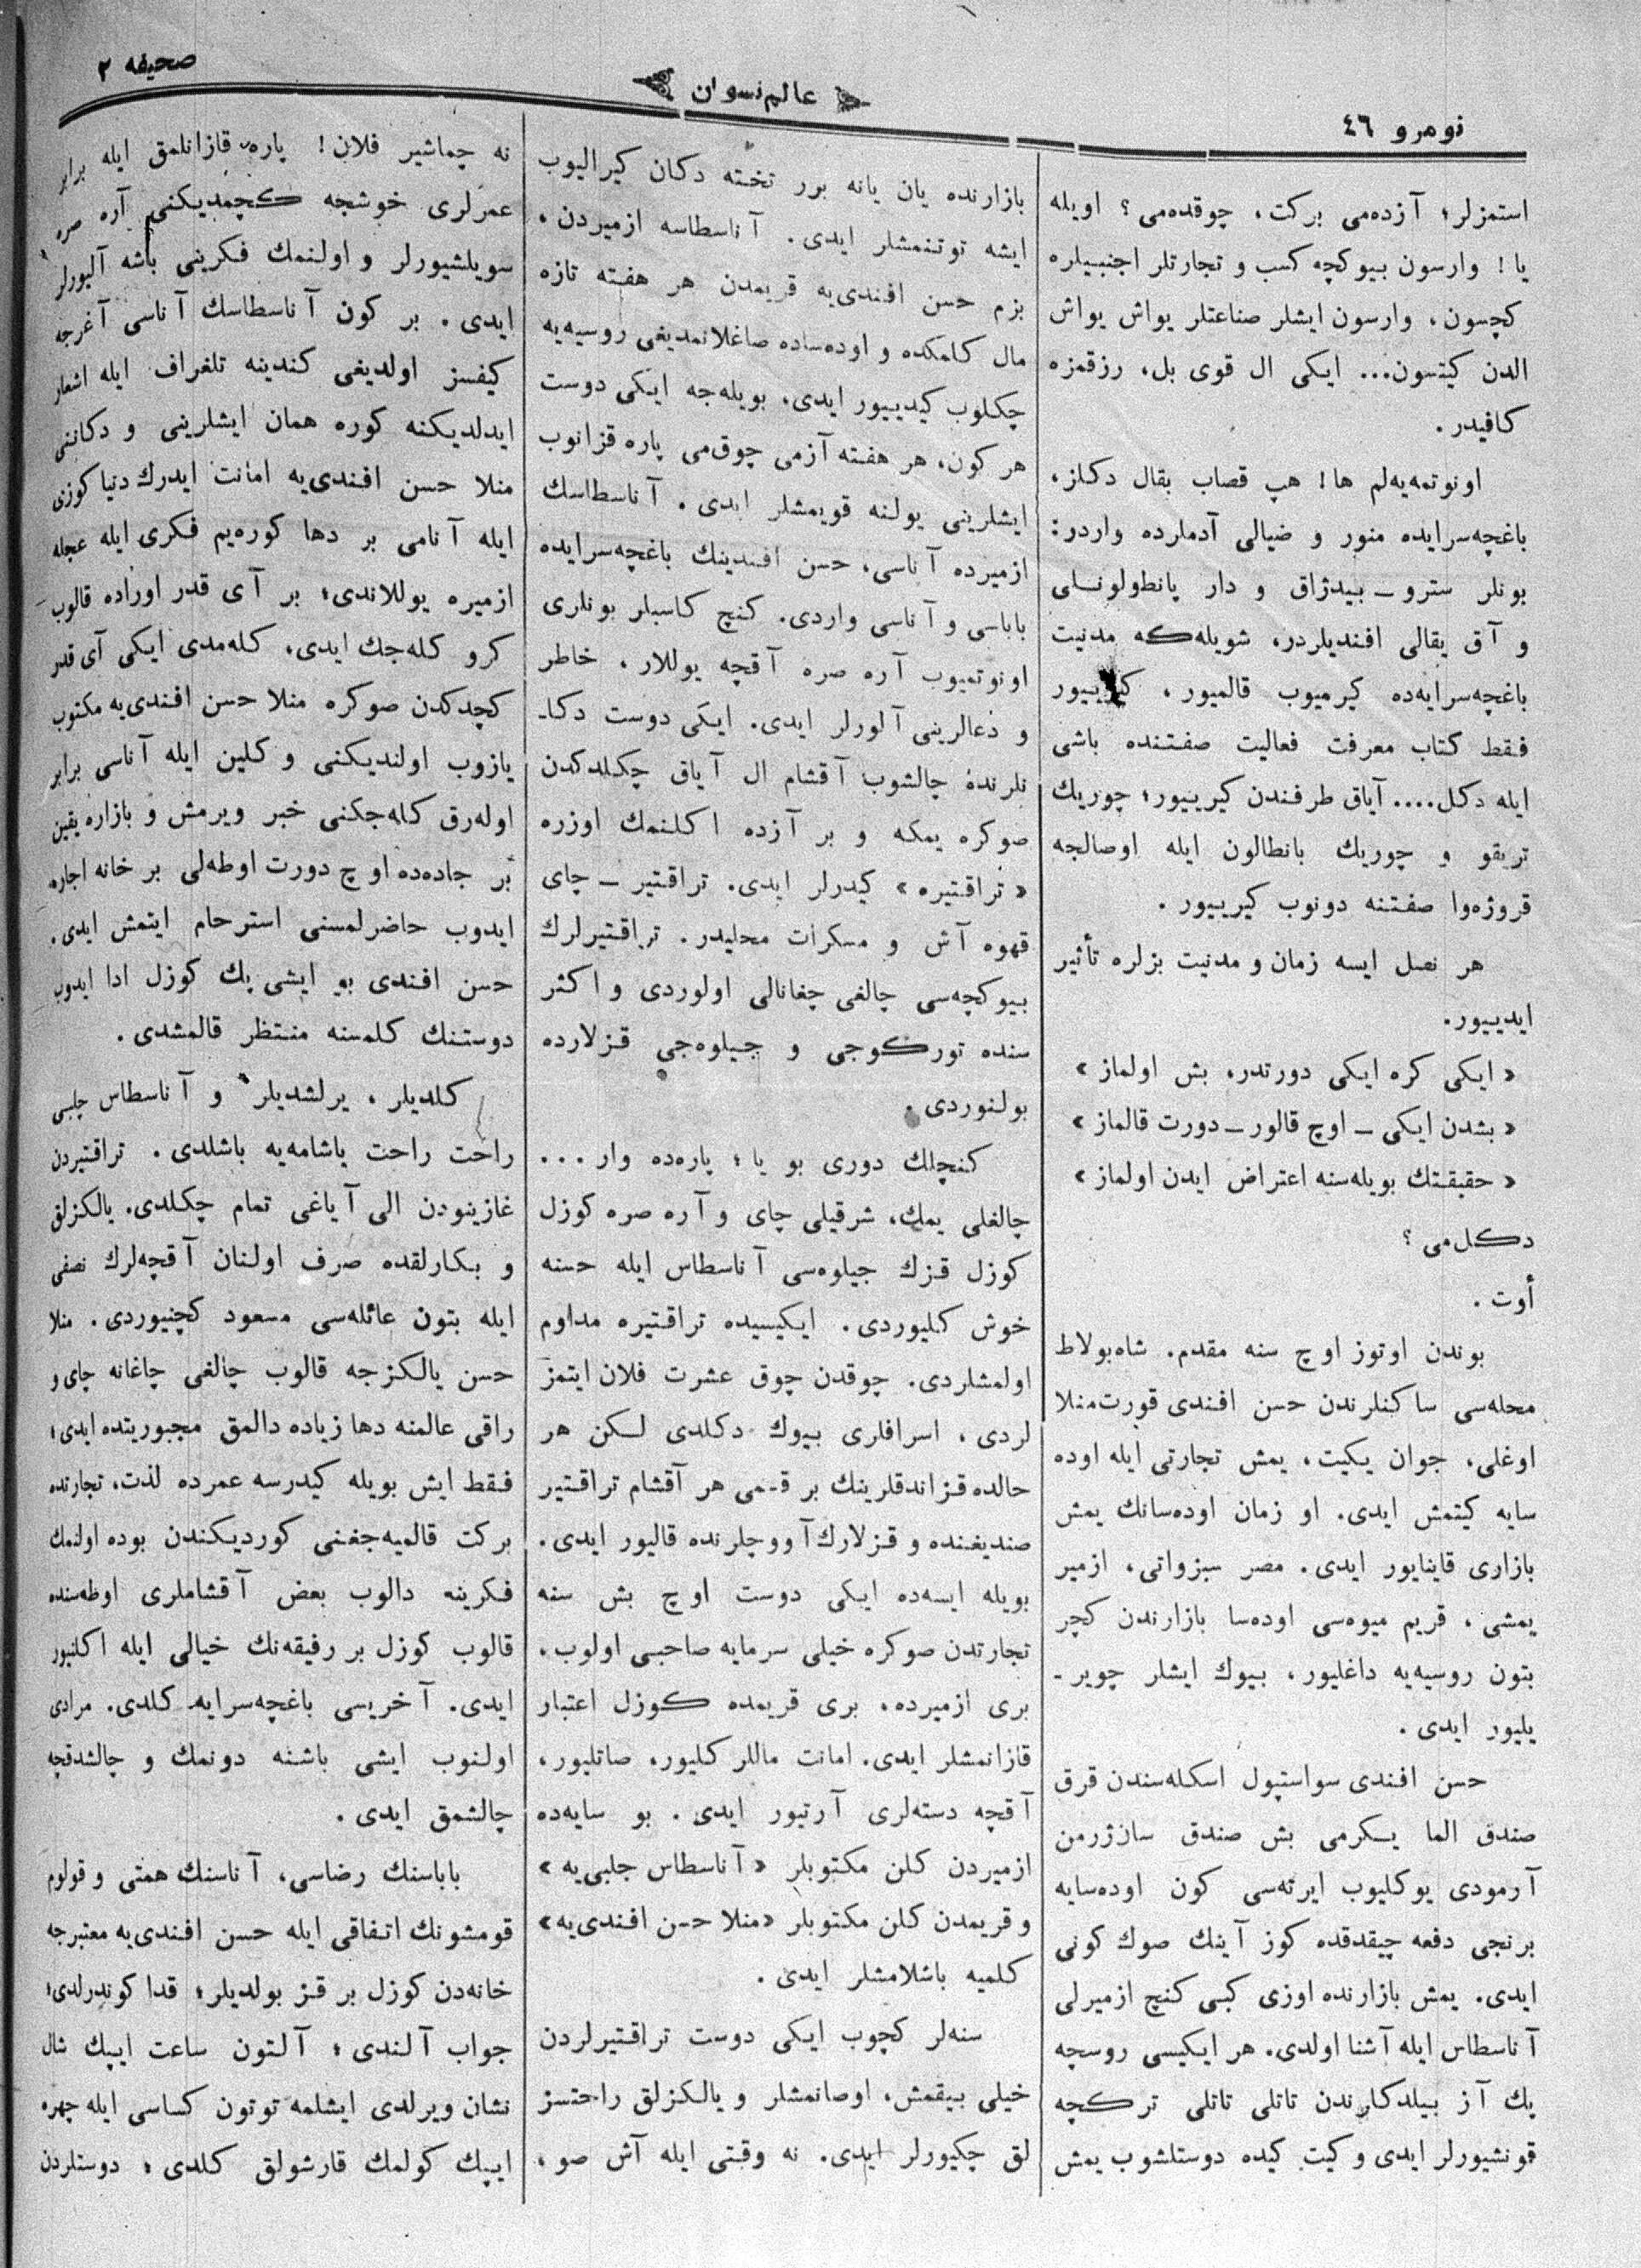 نومرو ٤٦
عالم نسوان
صحیفه ٢
استمزلر؛ آزده‌می برکت، چوقده‌می؟ اویله
یا! وارسون بیوکچه کسب و تجارتلر اجنبیلره
کچسون، وارسون ایشلر صناعتلر یواش یواش
الدن کیتسون... ایکی ال قوی بل، رزقمزه
کافیدر.
اونوتمه‌یه‌لم ها! هپ قصاب بقال دکلز،
باغچه‌سرایده منور و ضیالی آدملرده واردر:
بونلر سترو ـ بیدژاق و دار پانطولونلی
و آق یقالی افندیلردر، شویله‌که مدنیت
باغچه‌سرایه‌ده کیرمیوب قالمیور، کیرییور
فقط کتاب معرفت فعالیت صفتنده باشی
ایله دکل.... آیاق طرفندن کیرییور؛ چوریك
تریقو و چوریك بانطالون ایله اوصالجه
قروژه‌وا صفتنه دونوب کیرییور.
هر نصل ایسه زمان و مدنیت بزلره تأثیر
ایدییور.
« ایکی کره ایکی دورتدر، بش اولماز »
« بشدن ایکی ـ اوچ قالور ـ دورت قالماز »
« حقیقتك بویله‌سنه اعتراض ایدن اولماز »
دکل‌می ؟
أوت .
بوندن اوتوز اوچ سنه مقدم. شاه‌بولاط
محله‌سی ساکنلرندن حسن افندی قورت‌منلا
اوغلی، جوان یکیت، یمش تجارتی ایله اوده
سایه کیتمش ایدی. او زمان اوده‌سانك یمش
بازاری قاینایور ایدی. مصر سبزواتی، ازمیر
یمشی، قریم میوه‌سی اوده‌سا بازارندن کچر
بتون روسیه‌یه داغلیور، بیوك ایشلر چویر ـ
یلیور ایدی .
حسن افندی سواستپول اسکله‌سندن قرق
صندق الما یکرمی بش صندق سان‌ژرمن
آرمودی یوکلیوب ایرته‌سی کون اوده‌سایه
برنجی دفعه چیقدقده کوز آینك صوك کونی
ایدی. یمش بازارنده اوزی کبی کنچ ازمیرلی
آناسطاس ایله آشنا اولدی. هر ایکیسی روسچه
پك آز بیلدکلرندن تاتلی تاتلی ترکچه
قونشیورلر ایدی و کیت کیده دوستلشوب یمش
بازارنده یان یانه برر تخته دکان کیرالیوب
ایشه توتنمشلر ایدی. آناسطاسه ازمیردن،
بزم حسن افندی‌یه قریمدن هر هفته تازه
مال کلمکده و اوده‌ساده صاغلانمدیغی روسیه‌یه
چکلوب کیدییور ایدی، بویله‌جه ایکی دوست
هرکون، هر هفته آزمی چوق‌می پاره قزانوب
ایشلرینی یولنه قویمشلر ایدی. آناسطاسك
ازمیرده آناسی، حسن افندینك باغچه‌سرایده
باباسی و آناسی واردی. کنچ کاسبلر بونلری
اونوتمیوب آره صره آقچه یوللار، خاطر
و دعالرینی آلورلر ایدی. ایکی دوست دکا ـ
نلرنده چالشوب آقشام ال آیاق چکلدکدن
صوکره یمکه و بر آزده اکلنمك اوزره
« تراقتیره » کیدرلر ایدی. تراقتیر ـ چای
قهوه آش و مسکرات محلیدر. تراقتیرلرك
بیوکچه‌سی چالغی چغانالی اولوردی و اکثر
سنده تورکوجی و جیلوه‌جی قزلارده
بولنوردی .
کنچلك دوری بو یا؛ پاره‌ده وار...
چالغلی یمك، شرقیلی چای و آره صره کوزل
کوزل قزك جیلوه‌سی آناسطاس ایله حسنه
خوش کلیوردی. ایکیسیده تراقتیره مداوم
اولمشلردی. چوقدن چوق عشرت فلان ایتمز
لردی، اسرافلری بیوك دکلدی لکن هر
حالده قزاندقلرینك بر قسمی هر آقشام تراقتیر
صندیغنده و قزلارك آووچلرنده قالیور ایدی.
بویله ایسه‌ده ایکی دوست اوچ بش سنه
تجارتدن صوکره خیلی سرمایه صاحبی اولوب،
بری ازمیرده، بری قریمده کوزل اعتبار
قازانمشلر ایدی. امانت ماللر کلیور، صاتلیور،
آقچه دسته‌لری آرتیور ایدی. بو سایه‌ده
ازمیردن کلن مکتوبلر « آناسطاس جلبی‌یه »
و قریمدن کلن مکتوبلر «منلا حسن افندی‌یه»
کلمیه باشلامشلر ایدی .
سنه‌لر کچوب ایکی دوست تراقتیرلردن
خیلی بیقمش، اوصانمشلر و یالکزلق راحتسز
لق چکیورلر ایدی. نه وقتی ایله آش صو،
نه چماشیر فلان! پاره قازانلمق ایله برابر
عمرلری خوشجه کچمدیکنی آره صره
سویلشیورلر و اولنمك فکرینی باشه آلیورلر
ایدی. بر کون آناسطاسك آناسی آغرجه
کیفسز اولدیغی کندینه تلغراف ایله اشعار
ایدلدیکنه کوره همان ایشلرینی و دکاننی
منلا حسن افندی‌یه امانت ایدرك دنیا کوزی
ایله آنامی بر دها کوره‌یم فکری ایله عجله
ازمیره یوللاندی؛ بر آی قدر اوراده قالوب
کرو کله‌جك ایدی، کله‌مدی ایکی آی قدر
کچدکدن صوکره منلا حسن افندی‌یه مکتوب
یازوب اولندیکنی و کلین ایله آناسی برابر
اوله‌رق کله‌جکنی خبر ویرمش و بازاره یقین
بر جاده‌ده اوچ دورت اوطه‌لی بر خانه اجاره
ایدوب حاضرلمسنی استرحام ایتمش ایدی.
حسن افندی بو ایشی پك کوزل ادا ایدوب
دوستنك کلمسنه منتظر قالمشدی .
کلدیلر، یرلشدیلر و آناسطاس چلبی
راحت راحت یاشامه‌یه باشلدی. تراقتیردن
غازینودن الی آیاغی تمام چکلدی. یالکزلق
و بکارلقده صرف اولنان آقچه‌لرك نصفی
ایله بتون عائله‌سی مسعود کچنیوردی. منلا
حسن یالکزجه قالوب چالغی چاغانه چای و
راقی عالمنه دها زیاده دالمق مجبوریتده ایدی؛
فقط ایش بویله کیدرسه عمرده لذت، تجارتده
برکت قالمیه‌جغنی کوردیکندن بوده اولنمك
فکرینه دالوب بعض آقشاملری اوطه‌سنده
قالوب کوزل بر رفیقه‌نك خیالی ایله اکلنیور
ایدی. آخریسی باغچه‌سرایه کلدی. مرادی
اولنوب ایشی باشنه دونمك و چالشدقچه
چالشمق ایدی .
باباسنك رضاسی، آناسنك همتی و قولوم
قومشونك اتفاقی ایله حسن افندی‌یه معتبرجه
خانه‌دن کوزل بر قز بولدیلر؛ قدا کوندرلدی؛
جواب آلندی؛ آلتون ساعت ایپك شال
نشان ویرلدی ایشلمه توتون کساسی ایله چهره
ایپك کولمك قارشولق کلدی؛ دوستلردن